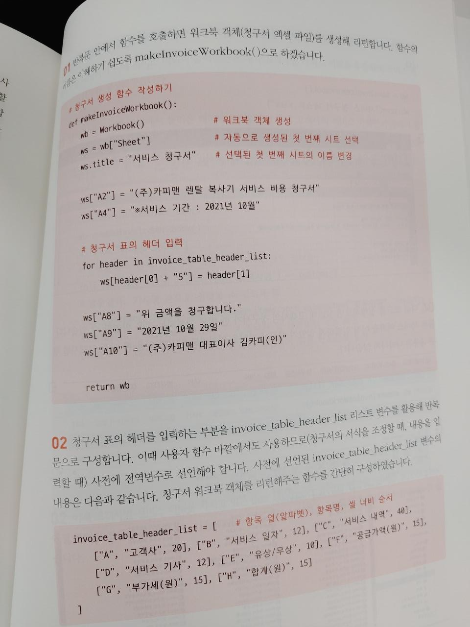 01 반복문 안에서 함수를 호출하면 워크북 객체(청구서 엑셀 파일)를 생성해 리턴합니다. 함수의
이해하기 쉽도록 makeInvoiceWorkbook()으로 하겠습니다.
# 청구서 생성 함수 작성하기
def makeInvoiceWorkbook():
wb = Workbook() # 워크북 객체 생성
ws = wb["Sheet"] # 자동으로 생성된 첫 번째 시트 선택
ws.title = "서비스 청구서" # 선택된 첫 번째 시트의 이름 변경
ws["A2"] = "(주)카피맨 렌탈 복사기 서비스 비용 청구서"
ws["A4"] = "※서비스 기간 : 2021년 10월"
# 청구서 표의 헤더 입력
for header in invoice_table_header_list:
ws[header[0] + "5"] = header[1]
ws["A8"] = "위 금액을 청구합니다."
ws["A9"] = "2021년 10월 29일"
ws["A10"] = "(주)카피맨 대표이사 김카피(인)"
return wb
02 청구서 표의 헤더를 입력하는 부분을 invoice_table_header list 리스트 변수를 활용해 반복
문으로 구성합니다. 이때 사용자 함수 바깥에서도 사용하므로(청구서의 서식을 조정할 때, 내용을 입
력할 때) 사전에 전역변수로 선언해야 합니다. 사전에 선언된 invoice_table_header_list 변수의
내용은 다음과 같습니다. 청구서 워크북 객체를 리턴해주는 함수를 간단히 구성하였습니다.
invoice_table_header_list = [ # 항목 열(알파벳), 항목명, 셀 너비 순서
["A", "고객사", 20], ["B", "서비스 일자", 12], ["C", "서비스 내역", 40],
["D", "서비스 기사", 12], ["E", "유상/무상", 10], ["F", "공급가액(원)", 15],
["G", "부가세(원)", 15], ["H", "합계(원)", 15]
]